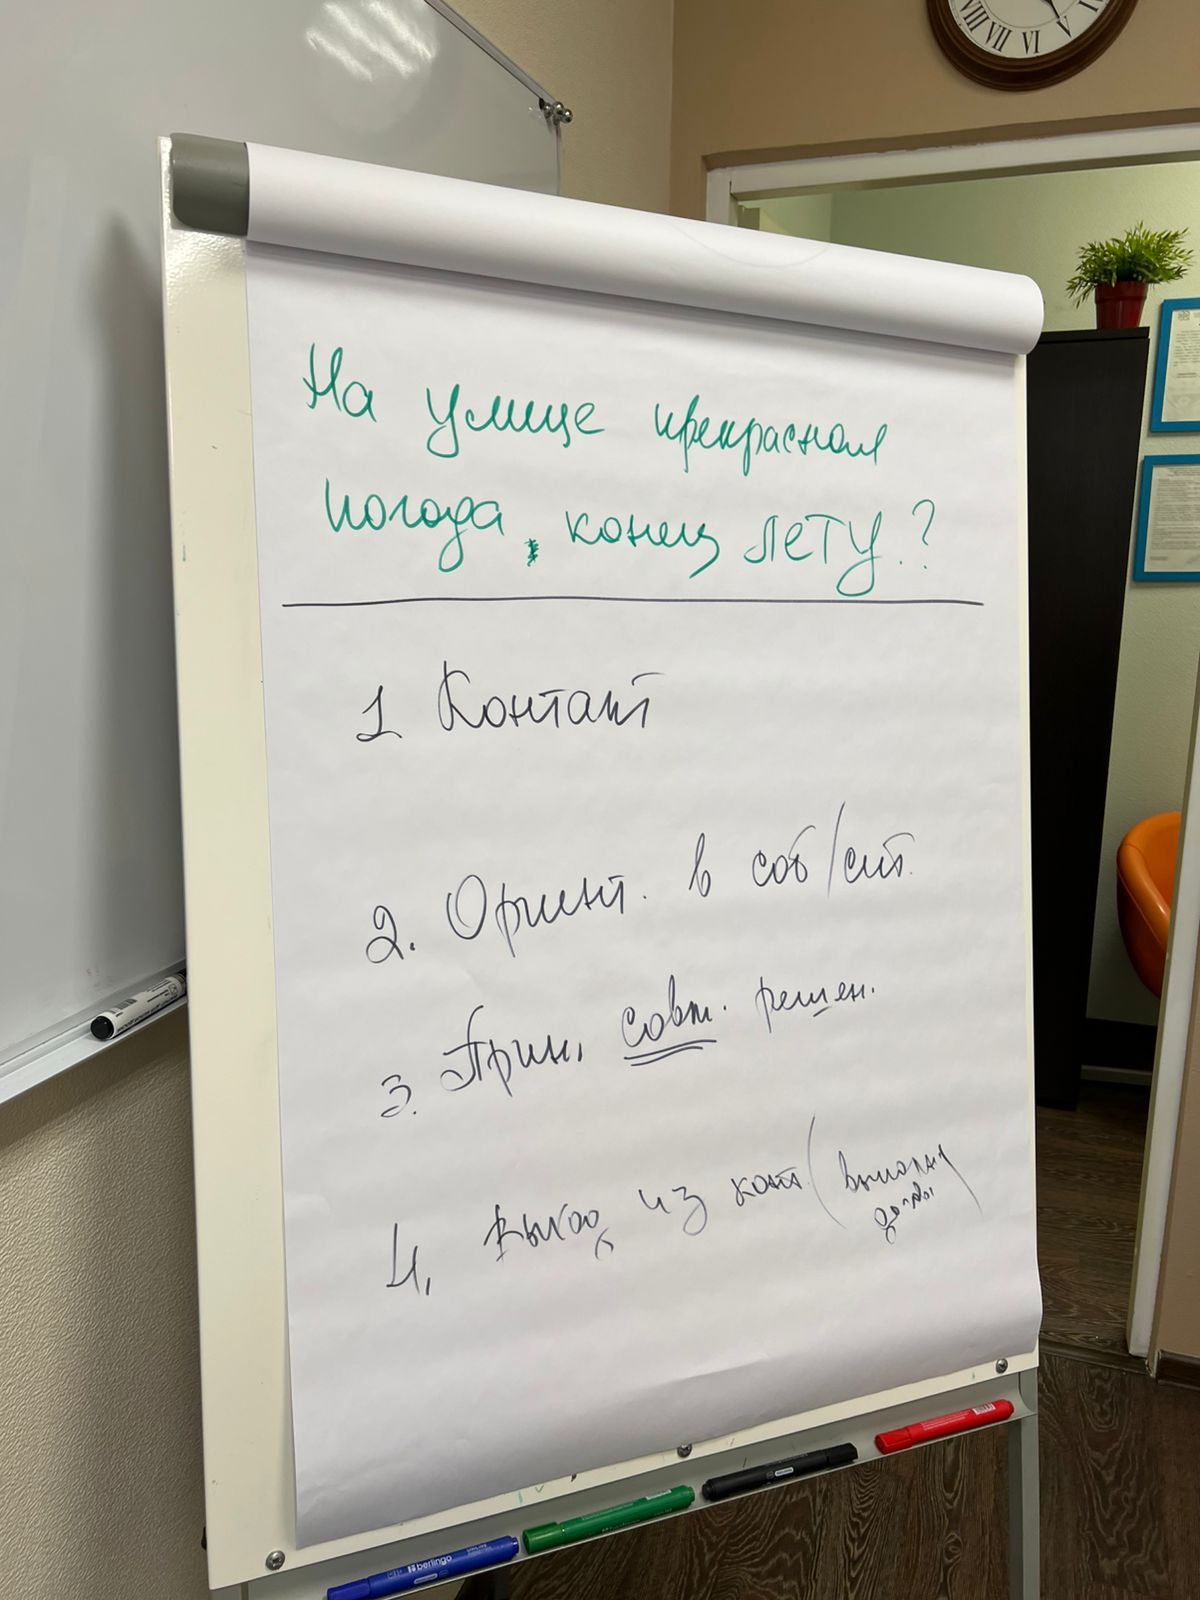 VIII VII VI V IV
На улице прекрасная
погода, конец лету.?
1 Контакт
2. Ориент. в соб/сит.
3. Прин. совм. решен.
4. Выход из конт. (выполн
дог-вы)
berlingo